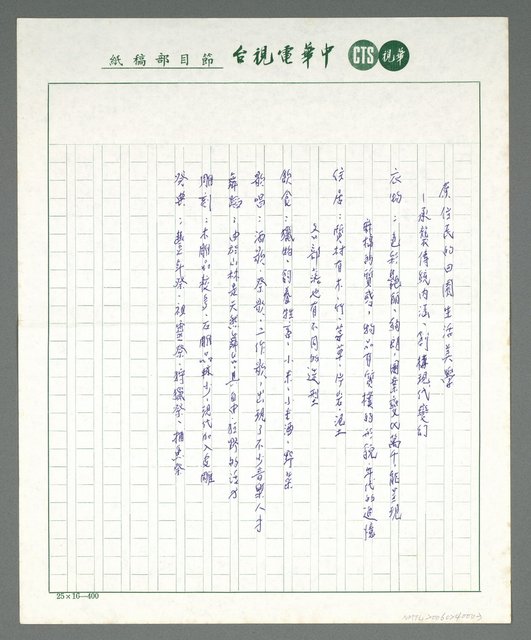 中華電視台 節目部稿紙
CTS 華視
原住民的田園生活美學
—承襲傳統內涵、創構現代變幻
衣物:色彩艷麗、絢爛,圖案變化萬千能呈現
麻棉的質感,物品有質樸的形貌年代的追憶
住居:質材有木、竹、茅草、片岩、泥土
各部落也有不同的造型
飲食:獵物、飼養牲畜、小米、小米酒、野菜
歌唱:酒歌、祭歌、工作歌,出現了不少音樂人才
舞蹈:由於山林是天然舞台,具自由狂野的活力
雕刻:木雕品較多,石雕品較少,現代加入皮雕
祭典:豐年祭、祖靈祭、狩獵祭、捕魚祭
25×16—400